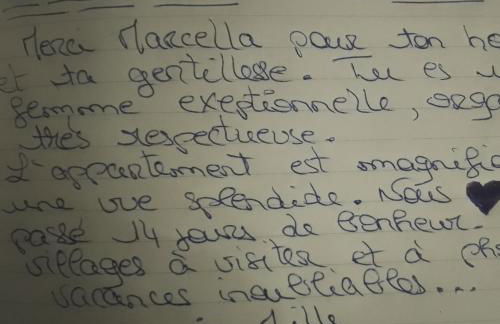 Merci Marcella pour ton
et ta gentillesse. Tu es
femme exeptionnelle,
très respectueuse.
L'appartement est
une vue splendide. Nous
passé 14 jours de bonheur.
villages à visiter et à
vacances inoubliables...